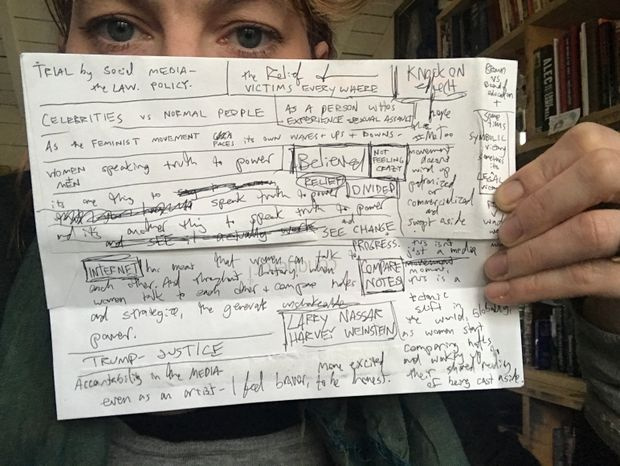 TRIAL by Social MEDIA -
the LAW. POLICY.
the Relief of
VICTIMS EVERYWHERE
KNOCK ON
effect
Brown
vs
Board
education
+
CELEBRITIES vs NORMAL PEOPLE
AS A PERSON WHO'S
EXPERIENCE SEXUAL ASSAULT
As the FEMINIST MOVEMENT FACES its own WAVES + UPS + DOWNS -
WOMEN speaking truth to power
MEN
Believed
NOT
FEELING
CRAZY
RELIEF
DIVIDED
its one thing to speak truth to power
and its another thing to speak truth to power
and SEE CHANGE
PROGRESS.
I hope
the
#MeToo
movement
doesn't
wind up
polarized
or
commercialized
and
swept aside
SYMBOLIC
victory
LEGAL
victory
INTERNET has meant that women can talk to
each other. And throughout history when
women talk to each other + compare notes
and strategize, the generate unshakeable
power.
COMPARE
NOTES
LARRY NASSAR
HARVEY WEINSTEIN
this isn't
just a media
moment,
this is a
tectonic
shift in
the world,
as women start
comparing notes
and waking up
their shared reality
of being cast aside.
TRUMP - JUSTICE
Accountability in the MEDIA
even as an artist - I feel braver, more excited
to be honest.
ALEC